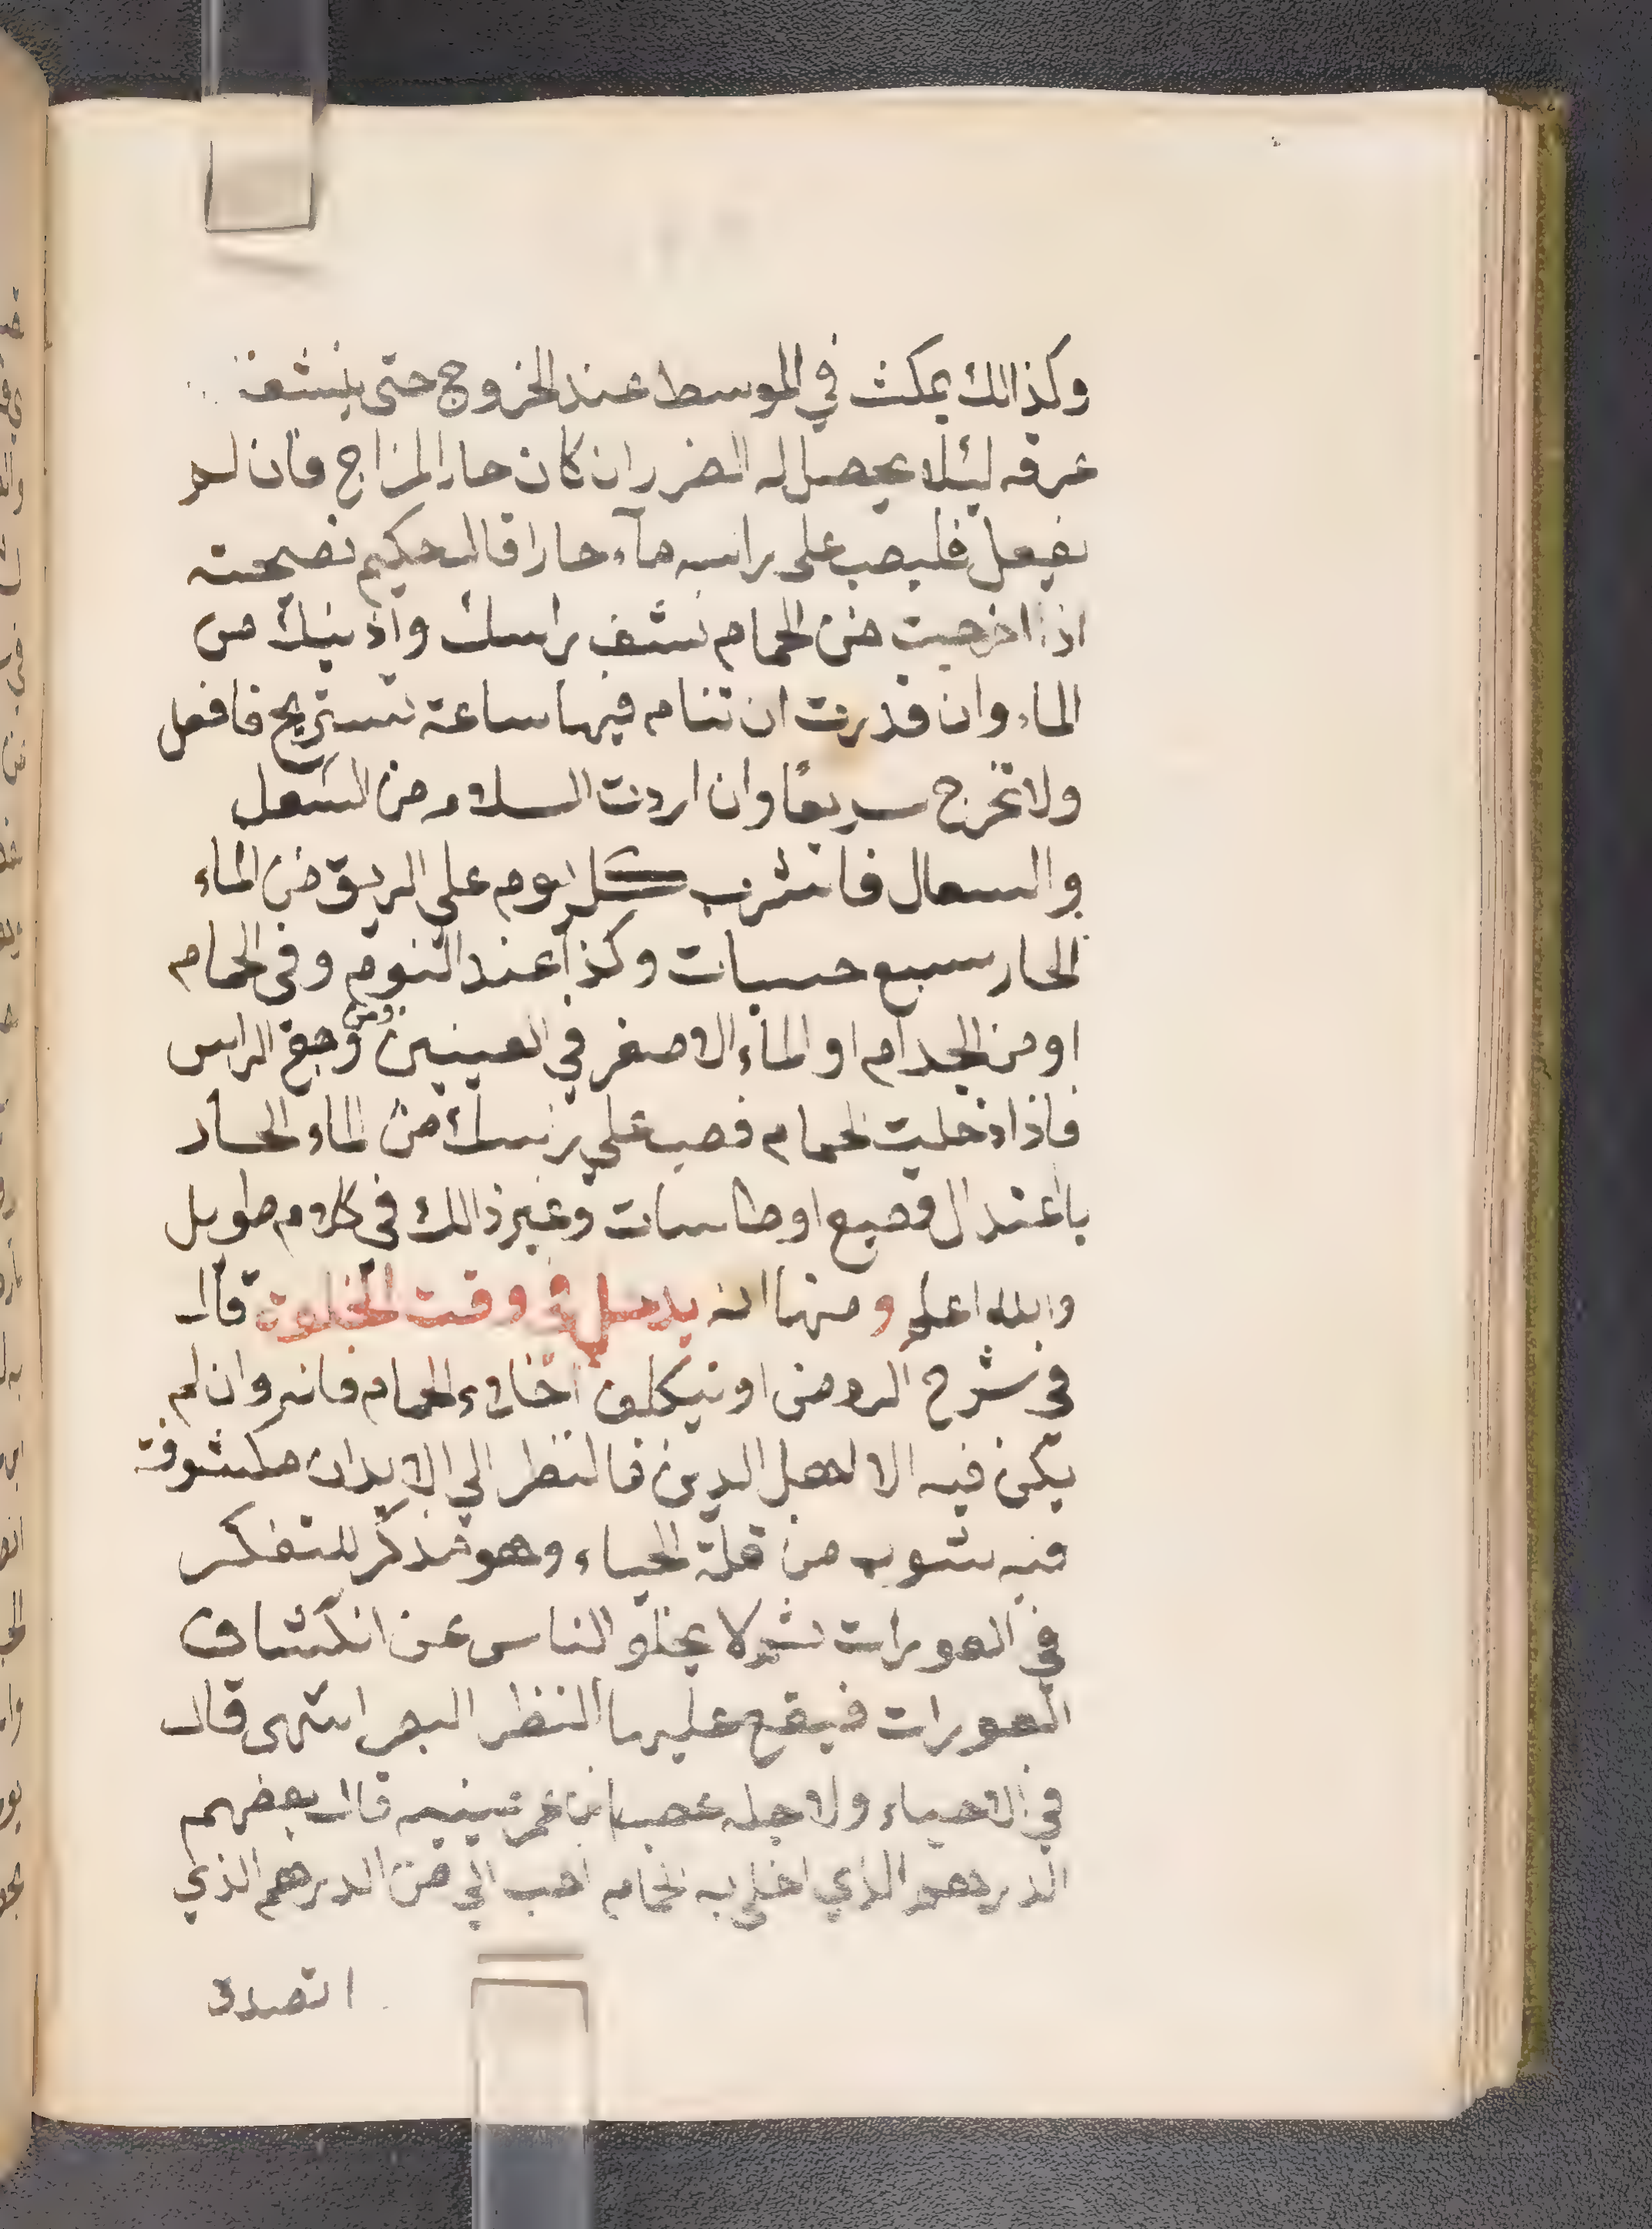 وكذالك يمكث في الموسط عند الخروج حتى ينشف
عرقه ليئلا يحصل له الضرر ان كان حار المزاج فان لم
يفعل فليصب على راسه مآء حارا قال حكيم نصيحته
اذا اخرجت من الحمام نشف راسك واذنيك من
الماء وان قدرت ان تنام فيها ساعة تستريح فافعل
ولا تخرج سريعًا وان اردت السلام من السعل
والسعال فاشرب كل يوم على الريق من الماء
الحار سبع حسيات وكذا عند النوم وفي الحمام
او من الجدام او الماء الاصفر في العينين ومن وجع الراس
فاذا دخلت لحمام فصب على رأسك من الماء الحار
باعتدال قصيع او طاسات وغير ذالك في كلام طويل
والله اعلم ومنها انه يدخل في وقت الخلوة قال
في شرح الروض او يتكلف اخلاء الحمام فانه وان لم
يكن فيه الا اهل الدين فالنظر الي الابدان مكشوفة
فيه شوب من قلة الحياء وهو مذكر للتفكر
في العورات ثم لا يخلو الناس عن انكشاف
العورات فيقع عليها النظر البصر انتهى قال
في الاحياء ولاجله عصب ابن عمر عينيه قال بعضهم
الدرهم الذي اخلي به الحمام احب الي من الدرهم الذي
اتصدق